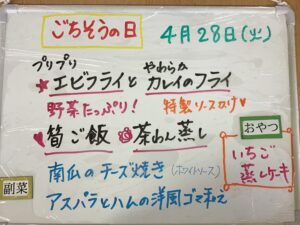 ごちそうの日
4月28日(火)
プリプリ やわらか
★エビフライと カレイのフライ
野菜たっぷり! 特製ソースかけ♥
♥筍ご飯 茶わん蒸し
おやつ
いちご
蒸しケーキ
副菜
南瓜のチーズ焼き(ホワイトソース)
アスパラとハムの洋風ゴマ和え